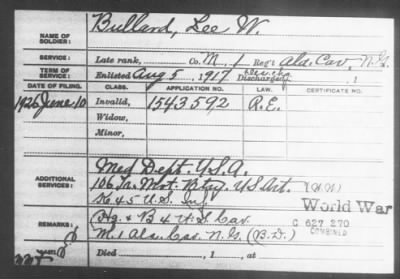 NAME OF SOLDIER: Bullard, Lee W.
SERVICE: Late rank, Co. M. 1 Reg't Ala. Cav. N.G.
TERM OF SERVICE: Enlisted Aug 5, 1917. Discharged , 1
DATE OF FILING. CLASS. APPLICATION NO. LAW. CERTIFICATE NO.
1926 June 10 Invalid, 1543592 R.E.
Widow,
Minor,
ADDITIONAL SERVICES: Med Dept. U.S.A.
106 Tr. Mot. Btry. U.S. Art. (W.W.)
K 45 U.S. Inf. World War
REMARKS: (Hq. & B 4 U.S. Cav. C 627 270
M. 1 Ala. Cav. N.G. (B.D.) COMBINED
Died , 1 , at